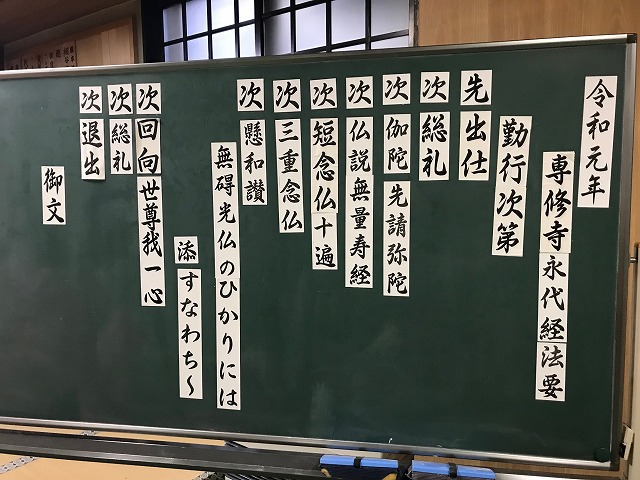 令和元年
専修寺永代経法要
勤行次第
先出仕
次総礼
次伽陀先請弥陀
次仏説無量寿経
次短念仏十遍
次三重念仏
次懸和讃
無碍光仏のひかりには
添すなわち〜
次回向世尊我一心
次総礼
次退出
御文